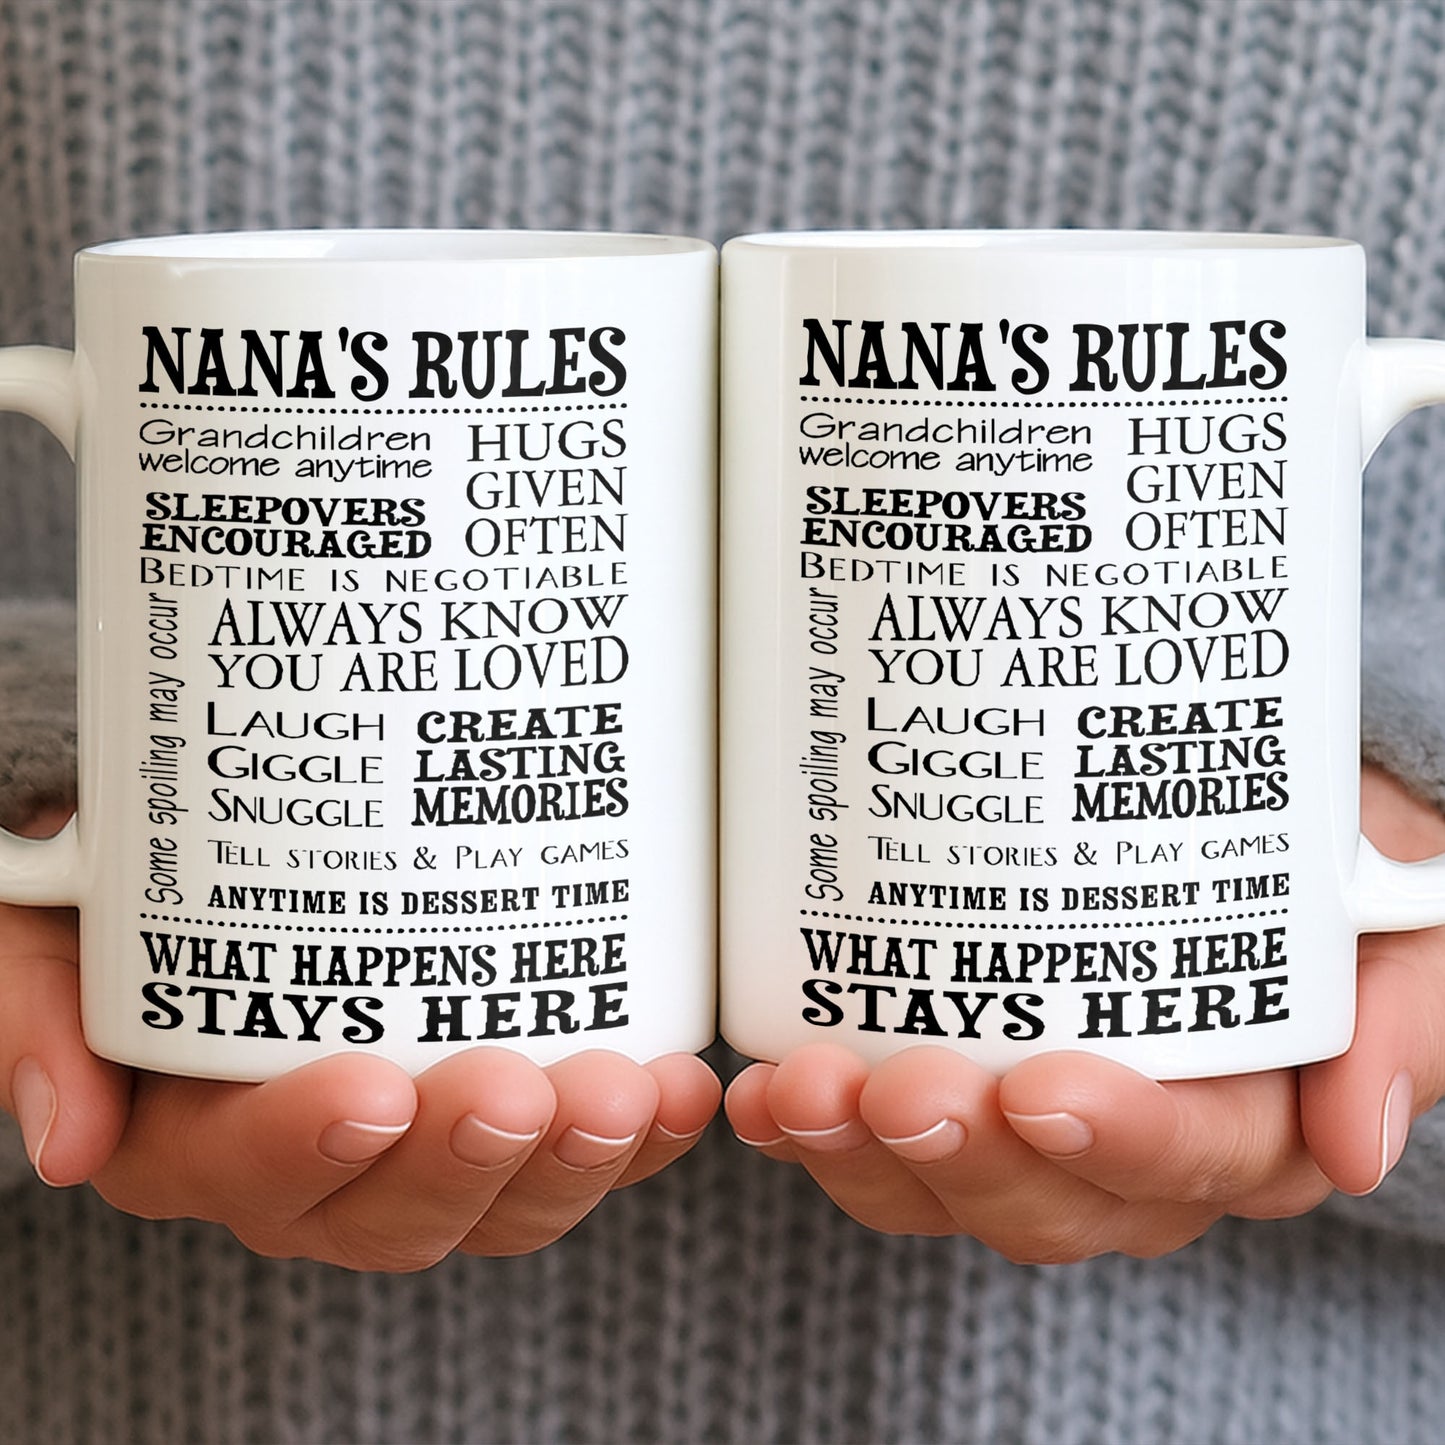 NANA'S RULES
Grandchildren
welcome anytime
HUGS
GIVEN
OFTEN
SLEEPOVERS
ENCOURAGED
BEDTIME IS NEGOTIABLE
Some spoiling may occur
ALWAYS KNOW
YOU ARE LOVED
LAUGH
GIGGLE
SNUGGLE
CREATE
LASTING
MEMORIES
TELL STORIES & PLAY GAMES
ANYTIME IS DESSERT TIME
WHAT HAPPENS HERE
STAYS HERE
NANA'S RULES
Grandchildren
welcome anytime
HUGS
GIVEN
OFTEN
SLEEPOVERS
ENCOURAGED
BEDTIME IS NEGOTIABLE
Some spoiling may occur
ALWAYS KNOW
YOU ARE LOVED
LAUGH
GIGGLE
SNUGGLE
CREATE
LASTING
MEMORIES
TELL STORIES & PLAY GAMES
ANYTIME IS DESSERT TIME
WHAT HAPPENS HERE
STAYS HERE